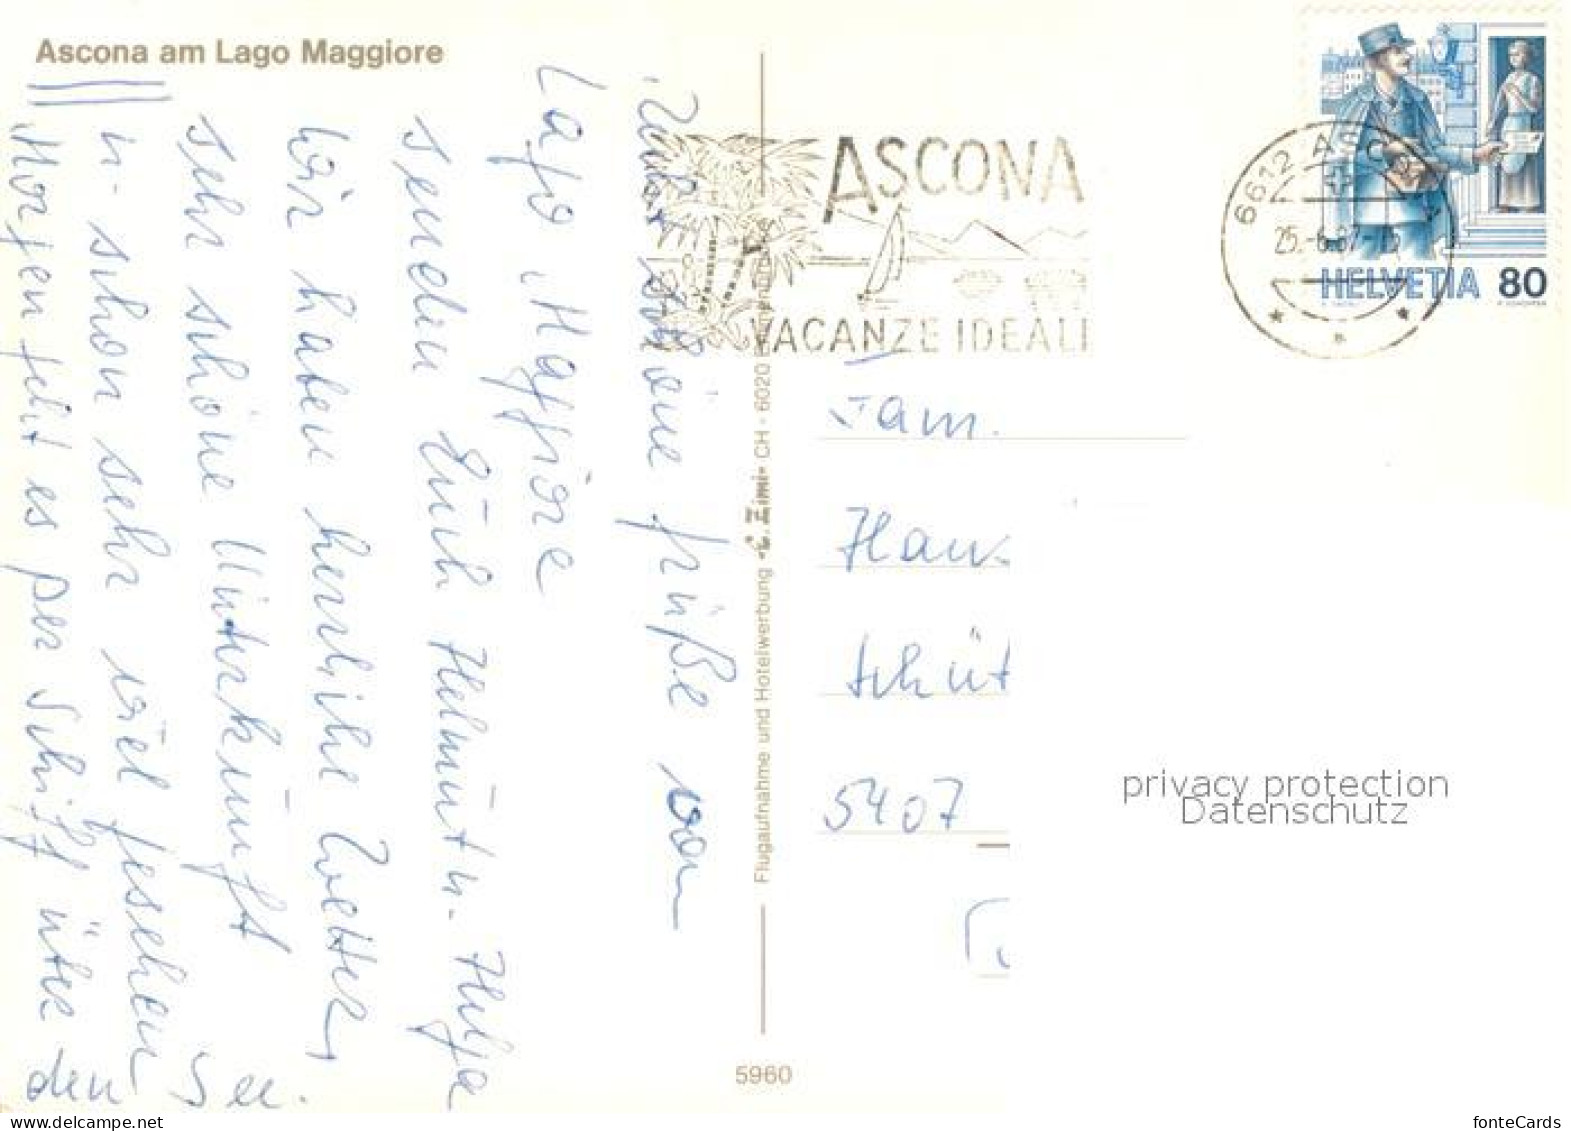 Ascona am Lago Maggiore
schöne Grüße vom
Lago Maggiore
senden Euch Helmut u. Helga
Wir haben herrliche Wetter,
sehr schöne Unterkunft
u. schon sehr viel gesehen
Morgen geht es per Schiff über den See.
Flugaufnahme und Hotelwerbung «C. Zimi» CH - 6020
5960
ASCONA
VACANZE IDEALI
6612 ASCONA
25.-6.87-15
HELVETIA 80
Fam.
Hans
Schüt
5407
privacy protection
Datenschutz
www.delcampe.net
fonteCards